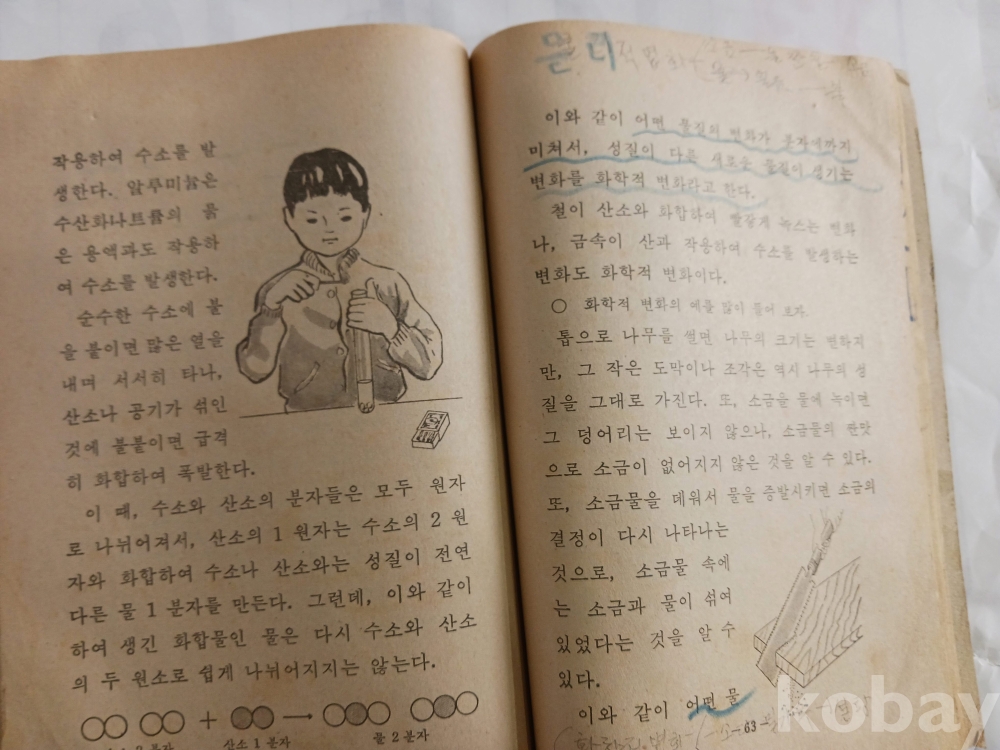 작용하여 수소를 발
생한다. 알루미늄은
수산화나트륨의 묽
은 용액과도 작용하
여 수소를 발생한다.
순수한 수소에 불
을 붙이면 많은 열을
내며 서서히 타나,
산소나 공기가 섞인
것에 불붙이면 급격
히 화합하여 폭발한다.
이 때, 수소와 산소의 분자들은 모두 원자
로 나뉘어져서, 산소의 1 원자는 수소의 2 원
자와 화합하여 수소나 산소와는 성질이 전연
다른 물 1 분자를 만든다. 그런데, 이와 같이
하여 생긴 화합물인 물은 다시 수소와 산소
의 두 원소로 쉽게 나뉘어지지는 않는다.
+ →
2 분자 산소 1 분자 물 2 분자
물리적 변화
이와 같이 어떤 물질의 변화가 분자에까지
미쳐서, 성질이 다른 새로운 물질이 생기는
변화를 화학적 변화라고 한다.
철이 산소와 화합하여 빨갛게 녹스는 변화
나, 금속이 산과 작용하여 수소를 발생하는
변화도 화학적 변화이다.
○ 화학적 변화의 예를 많이 들어 보자.
톱으로 나무를 썰면 나무의 크기는 변하지
만, 그 작은 도막이나 조각은 역시 나무의 성
질을 그대로 가진다. 또, 소금을 물에 녹이면
그 덩어리는 보이지 않으나, 소금물의 짠맛
으로 소금이 없어지지 않은 것을 알 수 있다.
또, 소금물을 데워서 물을 증발시키면 소금의
결정이 다시 나타나는
것으로, 소금물 속에
는 소금과 물이 섞여
있었다는 것을 알 수
있다.
이와 같이 어떤 물
- 63 -
kobay